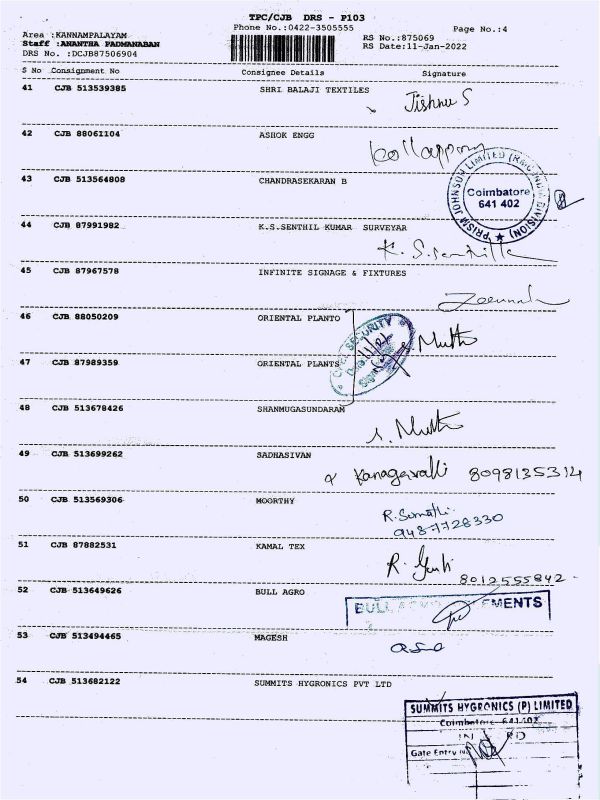 TPC/CJB DRS - P103
Phone No.:0422-3505555
Page No.:4
Area :KANNAMPALAYAM
Staff :ANANTHA PADMANABAN
DRS No. :DCJB87506904
RS No.:875069
RS Date:11-Jan-2022
S No Consignment No Consignee Details Signature
41 CJB 513539385 SHRI BALAJI TEXTILES
Jishnu S
42 CJB 88061104 ASHOK ENGG
43 CJB 513564808 CHANDRASEKARAN B
PRISM JOHNSON LIMITED (RMC INDIA DIVISION)
Coimbatore
641 402
44 CJB 87991982 K.S.SENTHIL KUMAR SURVEYAR
K. S.
45 CJB 87967578 INFINITE SIGNAGE & FIXTURES
46 CJB 88050209 ORIENTAL PLANTO
SECURITY
Muthu
47 CJB 87989359 ORIENTAL PLANTS
48 CJB 513678426 SHANMUGASUNDARAM
s. Muthu
49 CJB 513699262 SADHASIVAN
Kanagavalli 8098135314
50 CJB 513569306 MOORTHY
R. Sumathi
948-7728330
51 CJB 87882531 KAMAL TEX
R.
8012555842
52 CJB 513649626 BULL AGRO
BULL AGRO
53 CJB 513494465 MAGESH
54 CJB 513682122 SUMMITS HYGRONICS PVT LTD
SUMMITS HYGRONICS (P) LIMITED
Coimbatore 641402
Gate Entry No